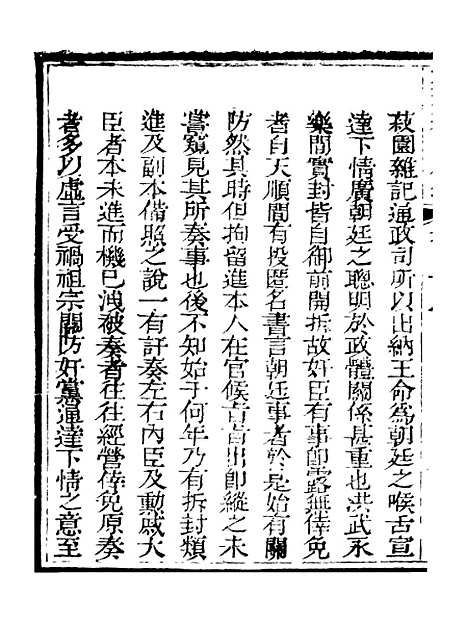 菽園雜記通政司所以出納王命為朝廷之喉舌宣
達下情廣朝廷之聰明於政體關係甚重也洪武永
樂間實封皆自御前開拆故奸臣有事即露無倖免
者自天順間有投匿名書言朝廷事者於是始有關
防然其時但拘留進本人在官候旨旨出即縱之未
嘗窺見其所奏事也後不知始于何年乃有拆封類
進及副本備照之說一有訐奏左右內臣及勳戚大
臣者本未進而機已洩被奏者往往經營倖免原奏
者多以虛言受禍祖宗關防奸黨通達下情之意至